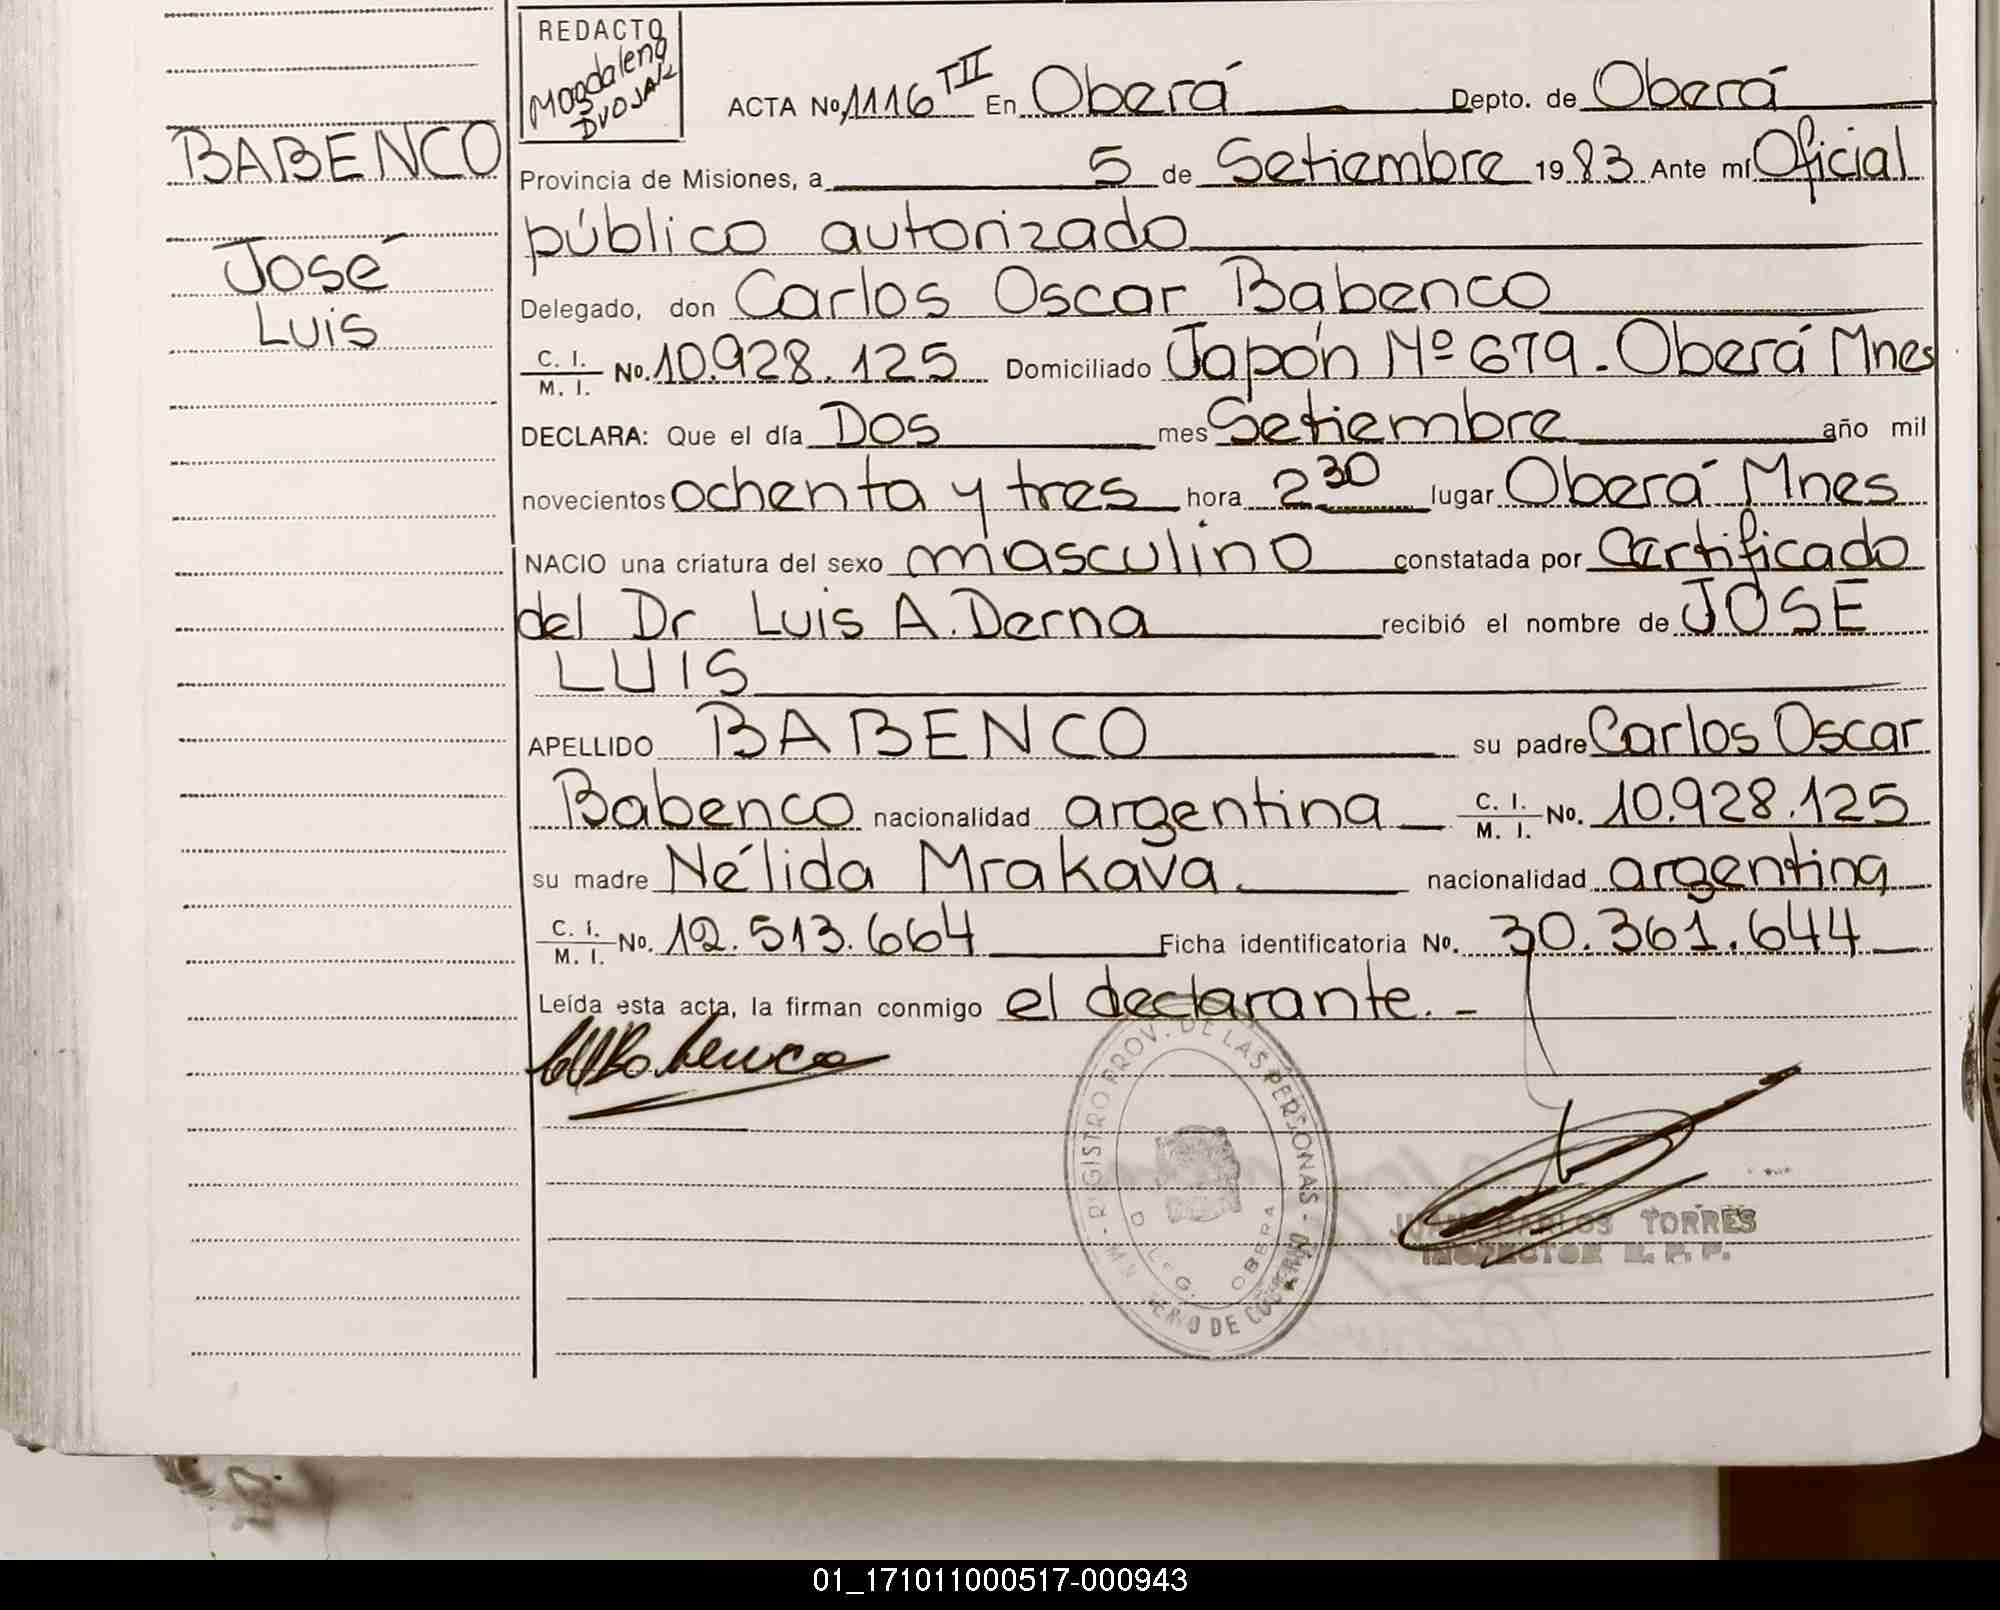 REDACTO
Magdalena
DVOJAK
BABENCO
José
Luis
ACTA No. 1116 TII En Oberá Depto. de Oberá
Provincia de Misiones, a 5 de Setiembre 1983 Ante mí Oficial
público autorizado
Delegado, don Carlos Oscar Babenco
C. I. / M. I. No. 10.928.125 Domiciliado Japón Nº 679. Oberá Mnes
DECLARA: Que el día Dos mes Setiembre año mil
novecientos ochenta y tres hora 2 30 lugar Oberá Mnes
NACIO una criatura del sexo masculino constatada por Certificado
del Dr Luis A. Derna recibió el nombre de JOSÉ
LUIS
APELLIDO BABENCO su padre Carlos Oscar
Babenco nacionalidad argentina C. I. / M. I. No. 10.928.125
su madre Nélida Mrakava nacionalidad argentina
C. I. / M. I. No. 12.513.664 Ficha identificatoria No. 30.361.644
Leída esta acta, la firman conmigo el declarante. -
Babenco
REGISTRO PROV. DE LAS PERSONAS
DELEG. OBERA
JUAN CARLOS TORRES
INSPECTOR R. P. P.
01_171011000517-000943